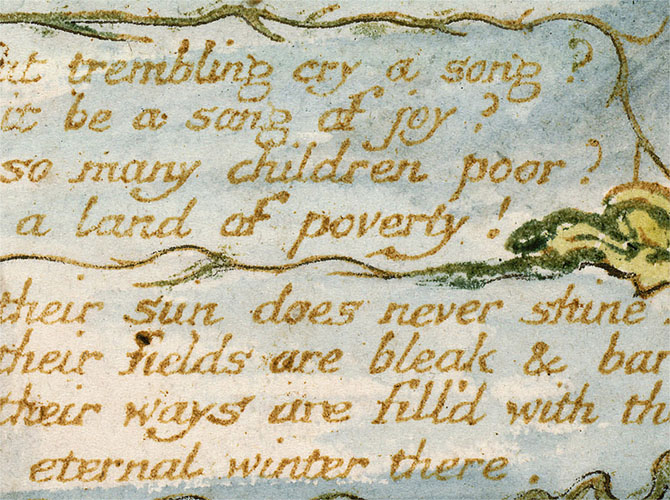 trembling cry a song ?
it be a song of joy ?
so many children poor ?
a land of poverty !
their sun does never shine
their fields are bleak & bar
their ways are fill'd with th
eternal winter there .